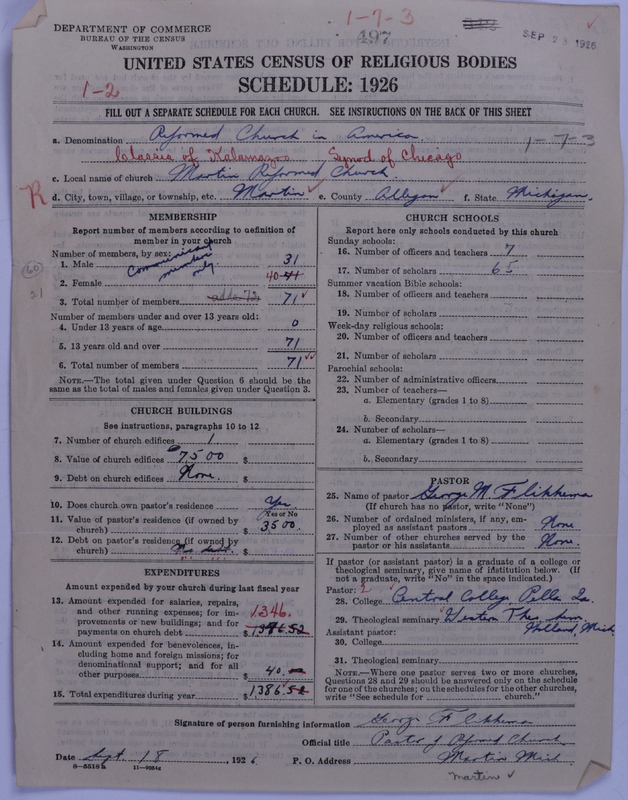 DEPARTMENT OF COMMERCE
BUREAU OF THE CENSUS
WASHINGTON
1-7-3
497
SEP 23 1926
UNITED STATES CENSUS OF RELIGIOUS BODIES
1-2
SCHEDULE: 1926
FILL OUT A SEPARATE SCHEDULE FOR EACH CHURCH. SEE INSTRUCTIONS ON THE BACK OF THIS SHEET
a. Denomination Reformed Church in America 1-7-3
Classis of Kalamazoo Synod of Chicago
c. Local name of church Martin Reformed Church
R d. City, town, village, or township, etc. Martin e. County Allegan f. State Michigan.
MEMBERSHIP
Report number of members according to definition of member in your church
Number of members, by sex:
communicant members only
1. Male 31
2. Female 40 41
3. Total number of members 71
Number of members under and over 13 years old:
4. Under 13 years of age 0
5. 13 years old and over 71
6. Total number of members 71
60
21
NOTE.—The total given under Question 6 should be the same as the total of males and females given under Question 3.
CHURCH BUILDINGS
See instructions, paragraphs 10 to 12
7. Number of church edifices 1
8. Value of church edifices 7500 $
9. Debt on church edifices None. $
10. Does church own pastor's residence Yes
Yes or No
11. Value of pastor's residence (if owned by church) $ 3500.
12. Debt on pastor's residence (if owned by church) No debt. $
EXPENDITURES
Amount expended by your church during last fiscal year
13. Amount expended for salaries, repairs, and other running expenses; for improvements or new buildings; and for payments on church debt 1346. $ 1386.52
14. Amount expended for benevolences, including home and foreign missions; for denominational support; and for all other purposes $ 40.
15. Total expenditures during year $ 1386.52
CHURCH SCHOOLS
Report here only schools conducted by this church
Sunday schools:
16. Number of officers and teachers 7
17. Number of scholars 65
Summer vacation Bible schools:
18. Number of officers and teachers
19. Number of scholars
Week-day religious schools:
20. Number of officers and teachers
21. Number of scholars
Parochial schools:
22. Number of administrative officers
23. Number of teachers—
a. Elementary (grades 1 to 8)
b. Secondary
24. Number of scholars—
a. Elementary (grades 1 to 8)
b. Secondary
PASTOR
25. Name of pastor George M. Flikkema
(If church has no pastor, write "None")
26. Number of ordained ministers, if any, employed as assistant pastors None
27. Number of other churches served by the pastor or his assistants None.
If pastor (or assistant pastor) is a graduate of a college or theological seminary, give name of institution below. (If not a graduate, write "No" in the space indicated.)
Pastor: 2
28. College Central College Pella Ia.
29. Theological seminary Western Theo. Sem. Holland, Mich
Assistant pastor:
30. College
31. Theological seminary
NOTE.—Where one pastor serves two or more churches, Questions 28 and 29 should be answered only on the schedule for one of the churches; on the schedules for the other churches, write "See schedule for church."
Signature of person furnishing information George Flikkema
Official title Pastor of Reformed Church
Date Sept. 18, 1926 P. O. Address Martin Mich.
8—5518a 11—9034a
Martin